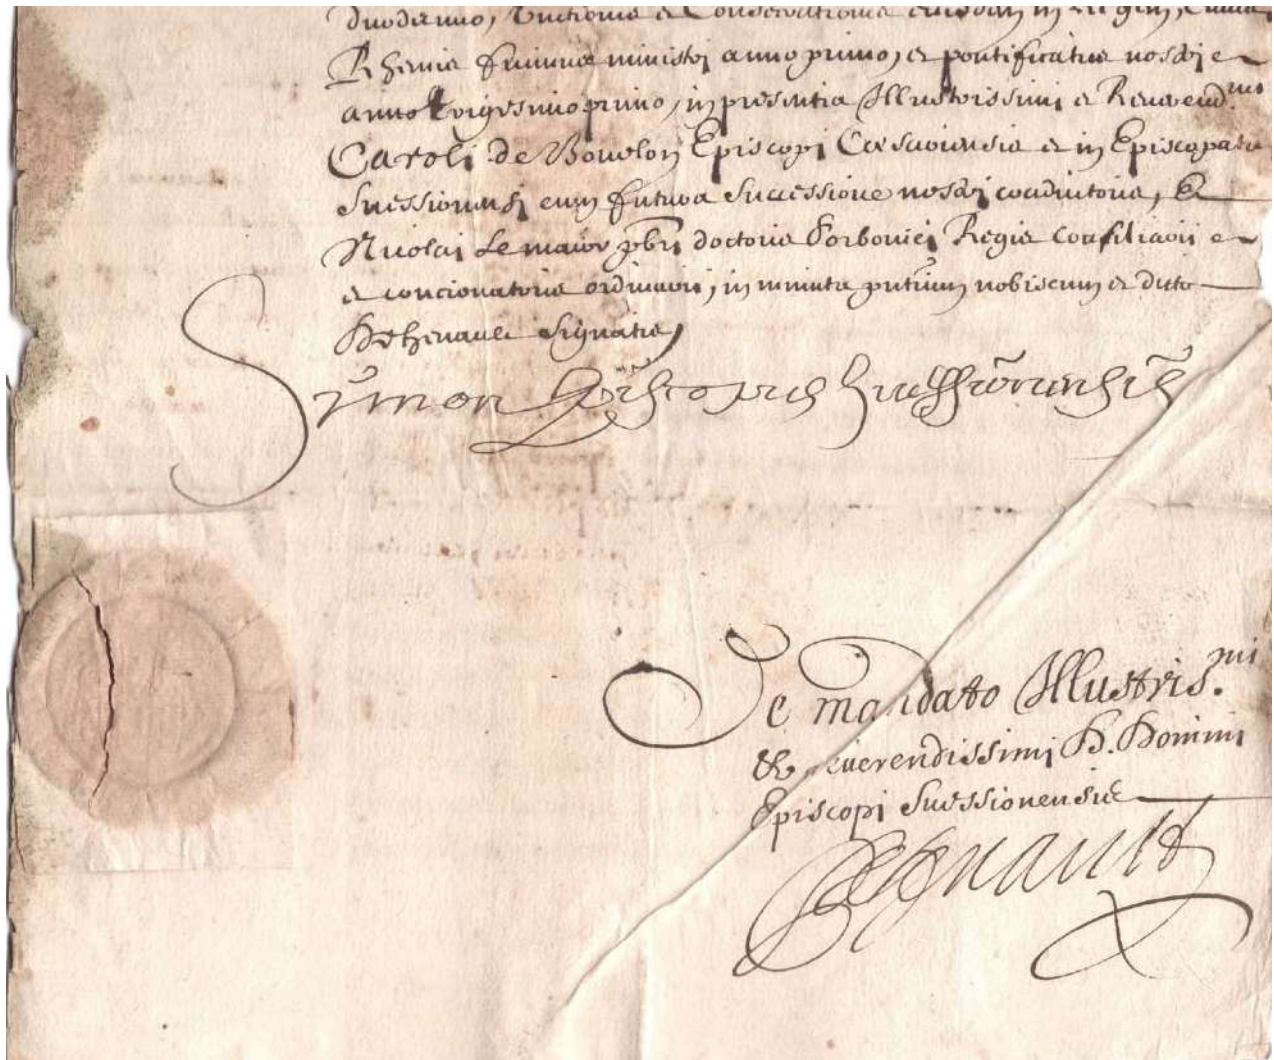 duodecimo, Unctionis et Consecrationis eiusdem in Regem, Civit.
Rhemis primus ministri anno primo, et pontificatus nostri
anno vigesimo primo, in presentia Illustrissimi et Reverend.mi
Caroli de Bourlon Episcopi Cæsariensis et in Episcopatu
Suessionensi cum futura successione nostri coadiutoris, &
Nicolai Le maior pbri doctoris Sorbonici Regis Consiliarii
et concionatoris ordinarii, in minuta pntium nobiscum et dicto
Dehenault Signatis,
Symon Episcopus Suessionensis
De mandato Illustris.mi
& Reverendissimi D. Domini
Episcopi Suessionensis
Dehenault